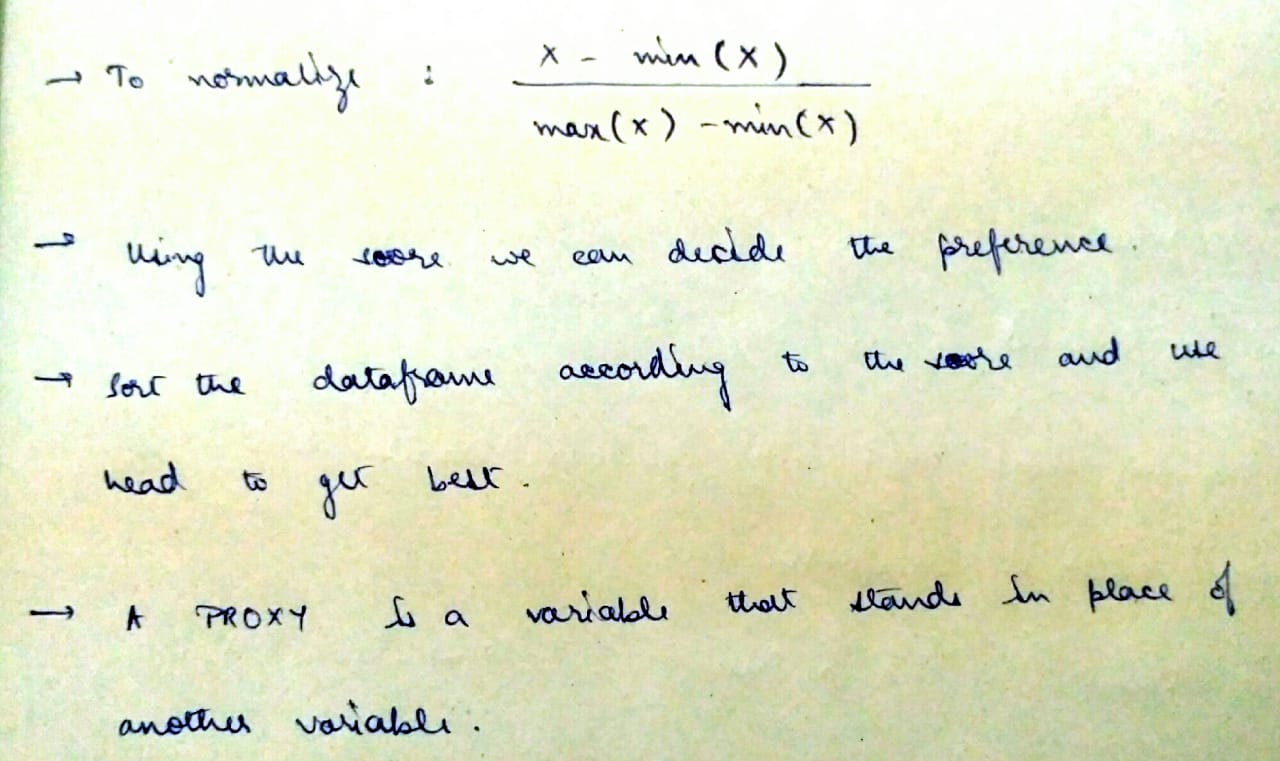 → To normalize : x - min(x) / max(x) - min(x)
→ Using the score we can decide the preference.
→ Sort the dataframe according to the score and use
head to get best.
→ A PROXY is a variable that stands in place of
another variable.